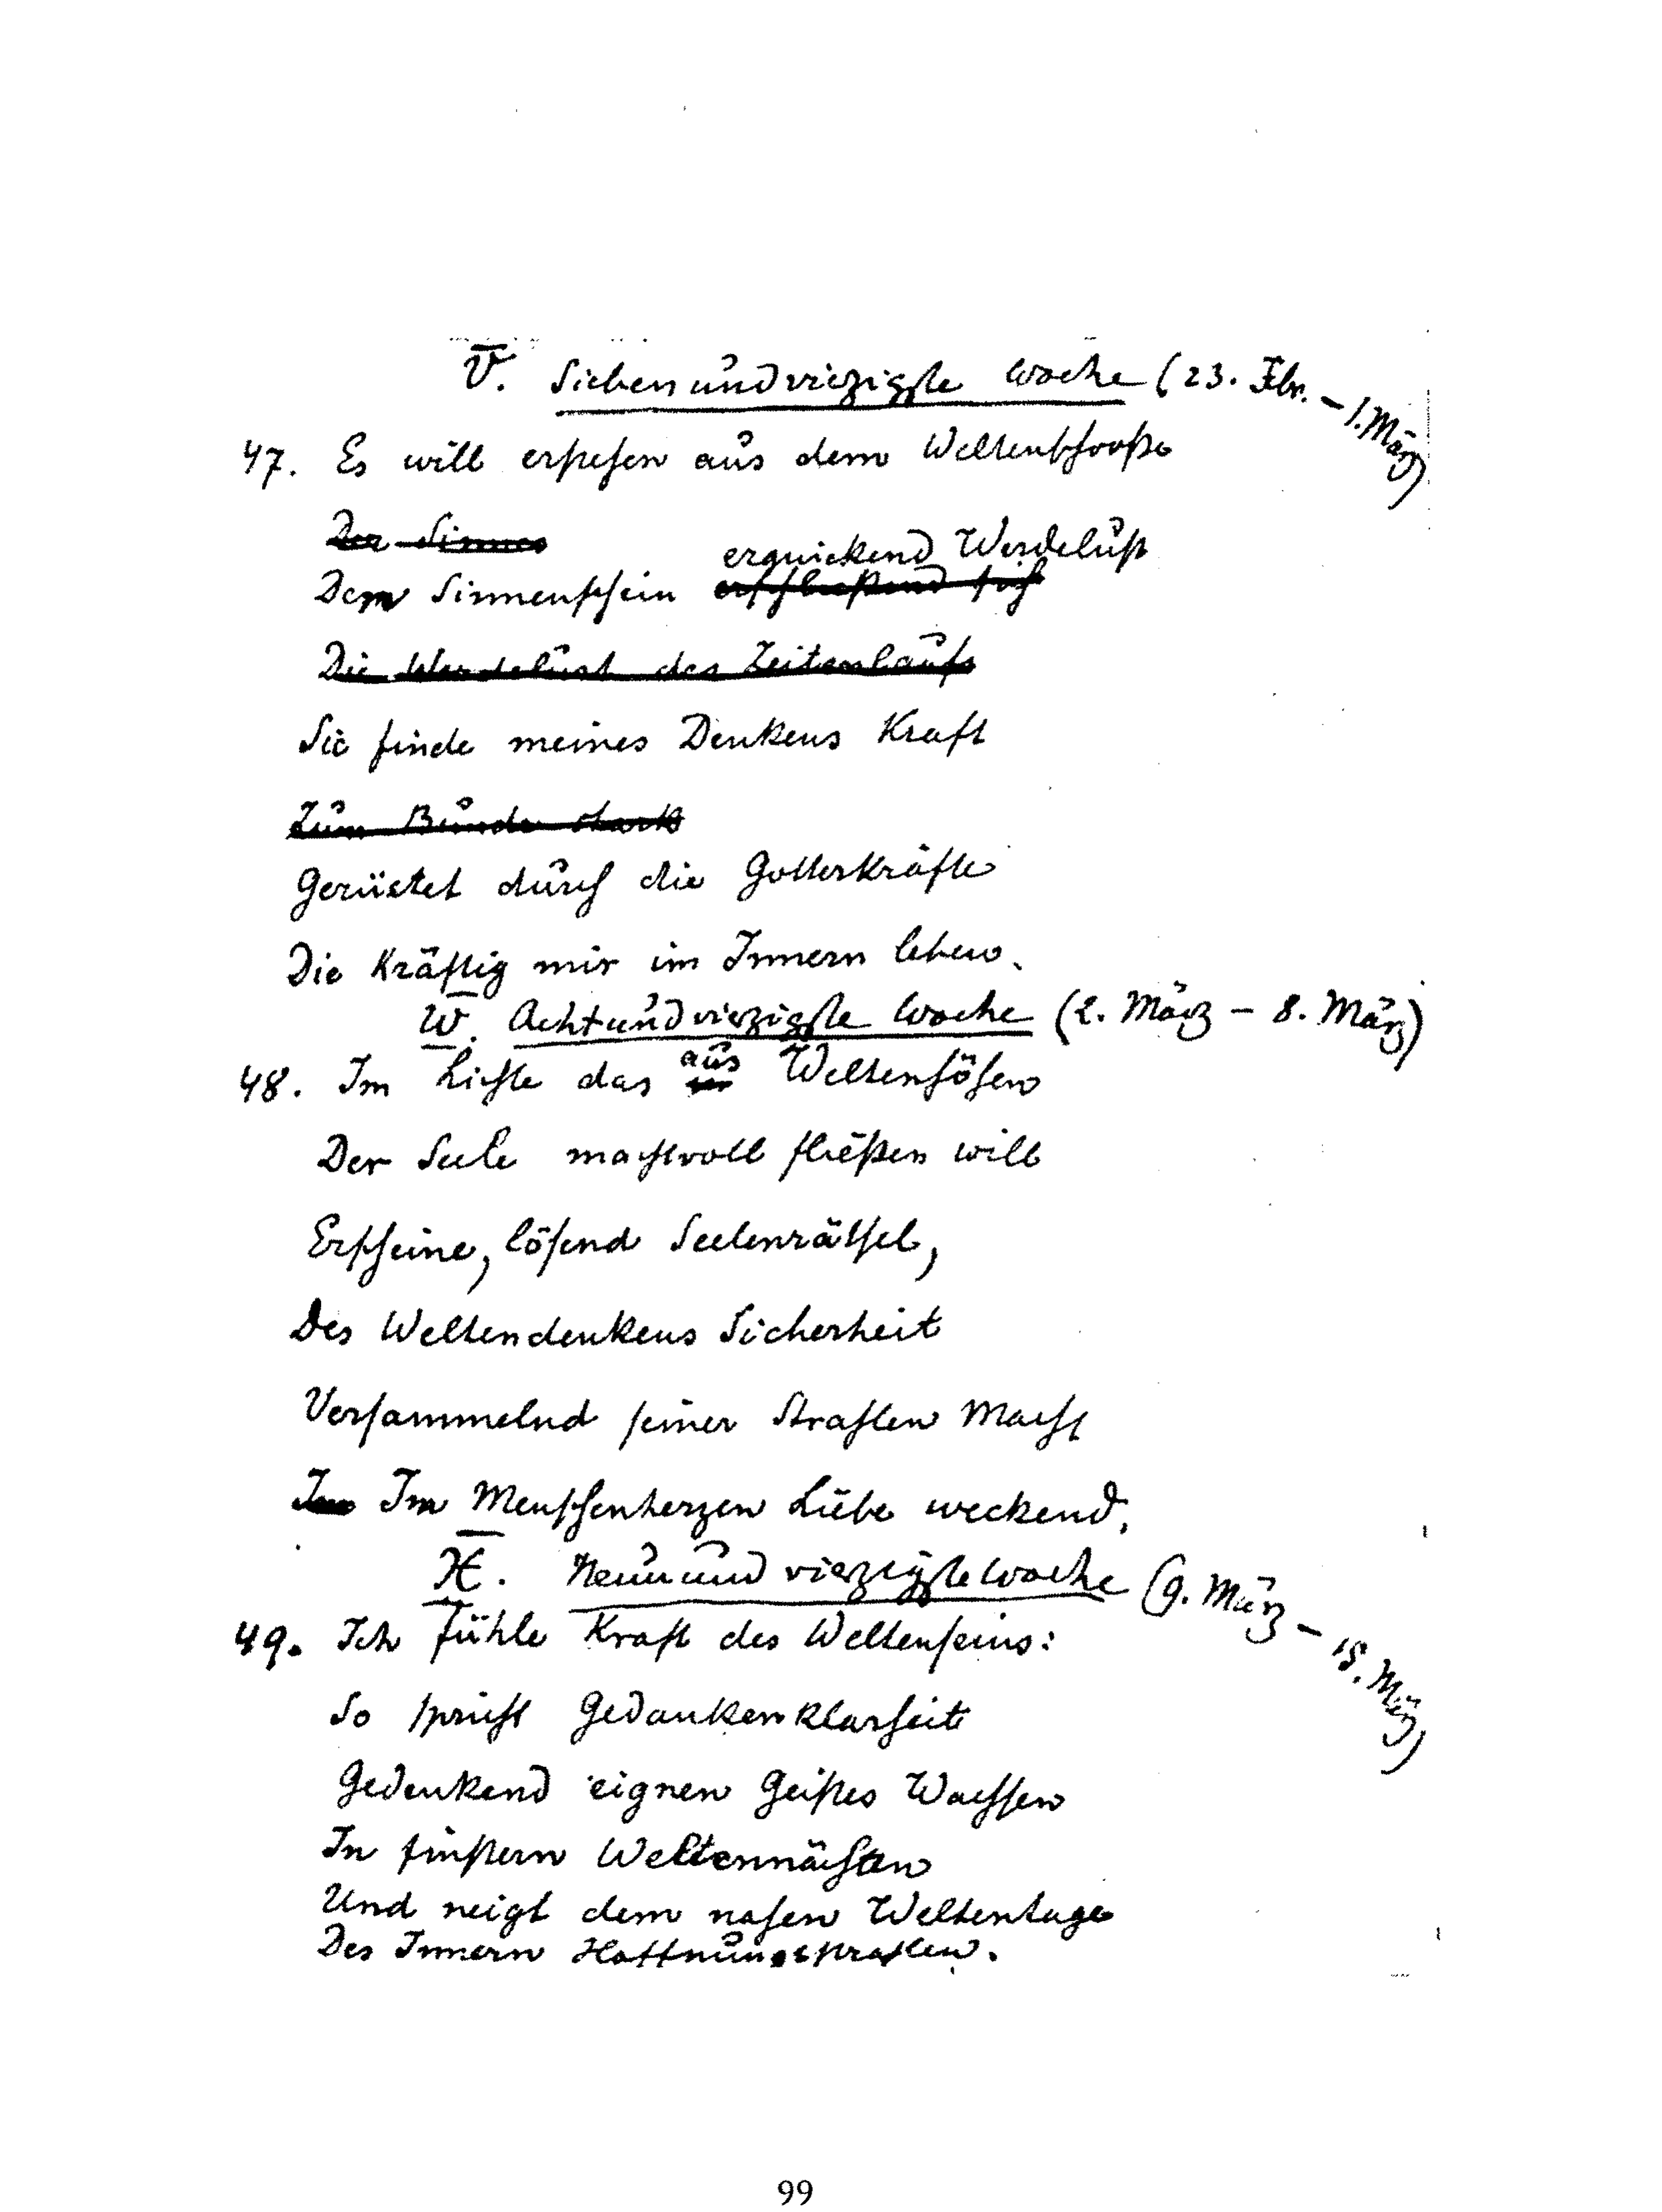 V. Siebenundvierzigste Woche (23. Febr. – 1. März)
47. Es will erstehen aus dem Weltenschooße
Der Sinnes
erquickend Werdelust
Dem Sinnenschein erschließend sich
Die Werdelust des Zeitenlaufs
Sie finde meines Denkens Kraft
Zum Bunde stark
Gerüstet durch die Gotterkräfte
Die kräftig mir im Innern leben.
W. Achtundvierzigste Woche (2. März – 8. März)
aus
48. Im Lichte das Weltenhöhen
Der Seele machtvoll fließen will
Erscheine, lösend Seelenrätsel,
Des Weltendenkens Sicherheit
Versammelnd seiner Strahlen Macht
Im Im Menschenherzen Liebe weckend.
X. Neunundvierzigste Woche (9. März – 15. März)
49. Ich fühle Kraft des Weltenseins:
So spricht Gedankenklarheit
Gedenkend eignen Geistes Wachsen
In finstern Weltennächten
Und neigt dem nahen Weltentage
Des Innern Hoffnungsstrahlen.
99